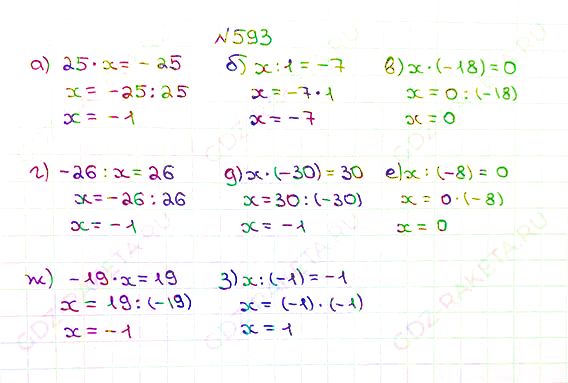 №593
а) 25·x = -25
x = -25:25
x = -1
б) x:1 = -7
x = -7·1
x = -7
в) x·(-18) = 0
x = 0:(-18)
x = 0
г) -26:x = 26
x = -26:26
x = -1
д) x·(-30) = 30
x = 30:(-30)
x = -1
е) x:(-8) = 0
x = 0·(-8)
x = 0
ж) -19·x = 19
x = 19:(-19)
x = -1
з) x:(-1) = -1
x = (-1)·(-1)
x = 1
GDZ-RAKETA.RU